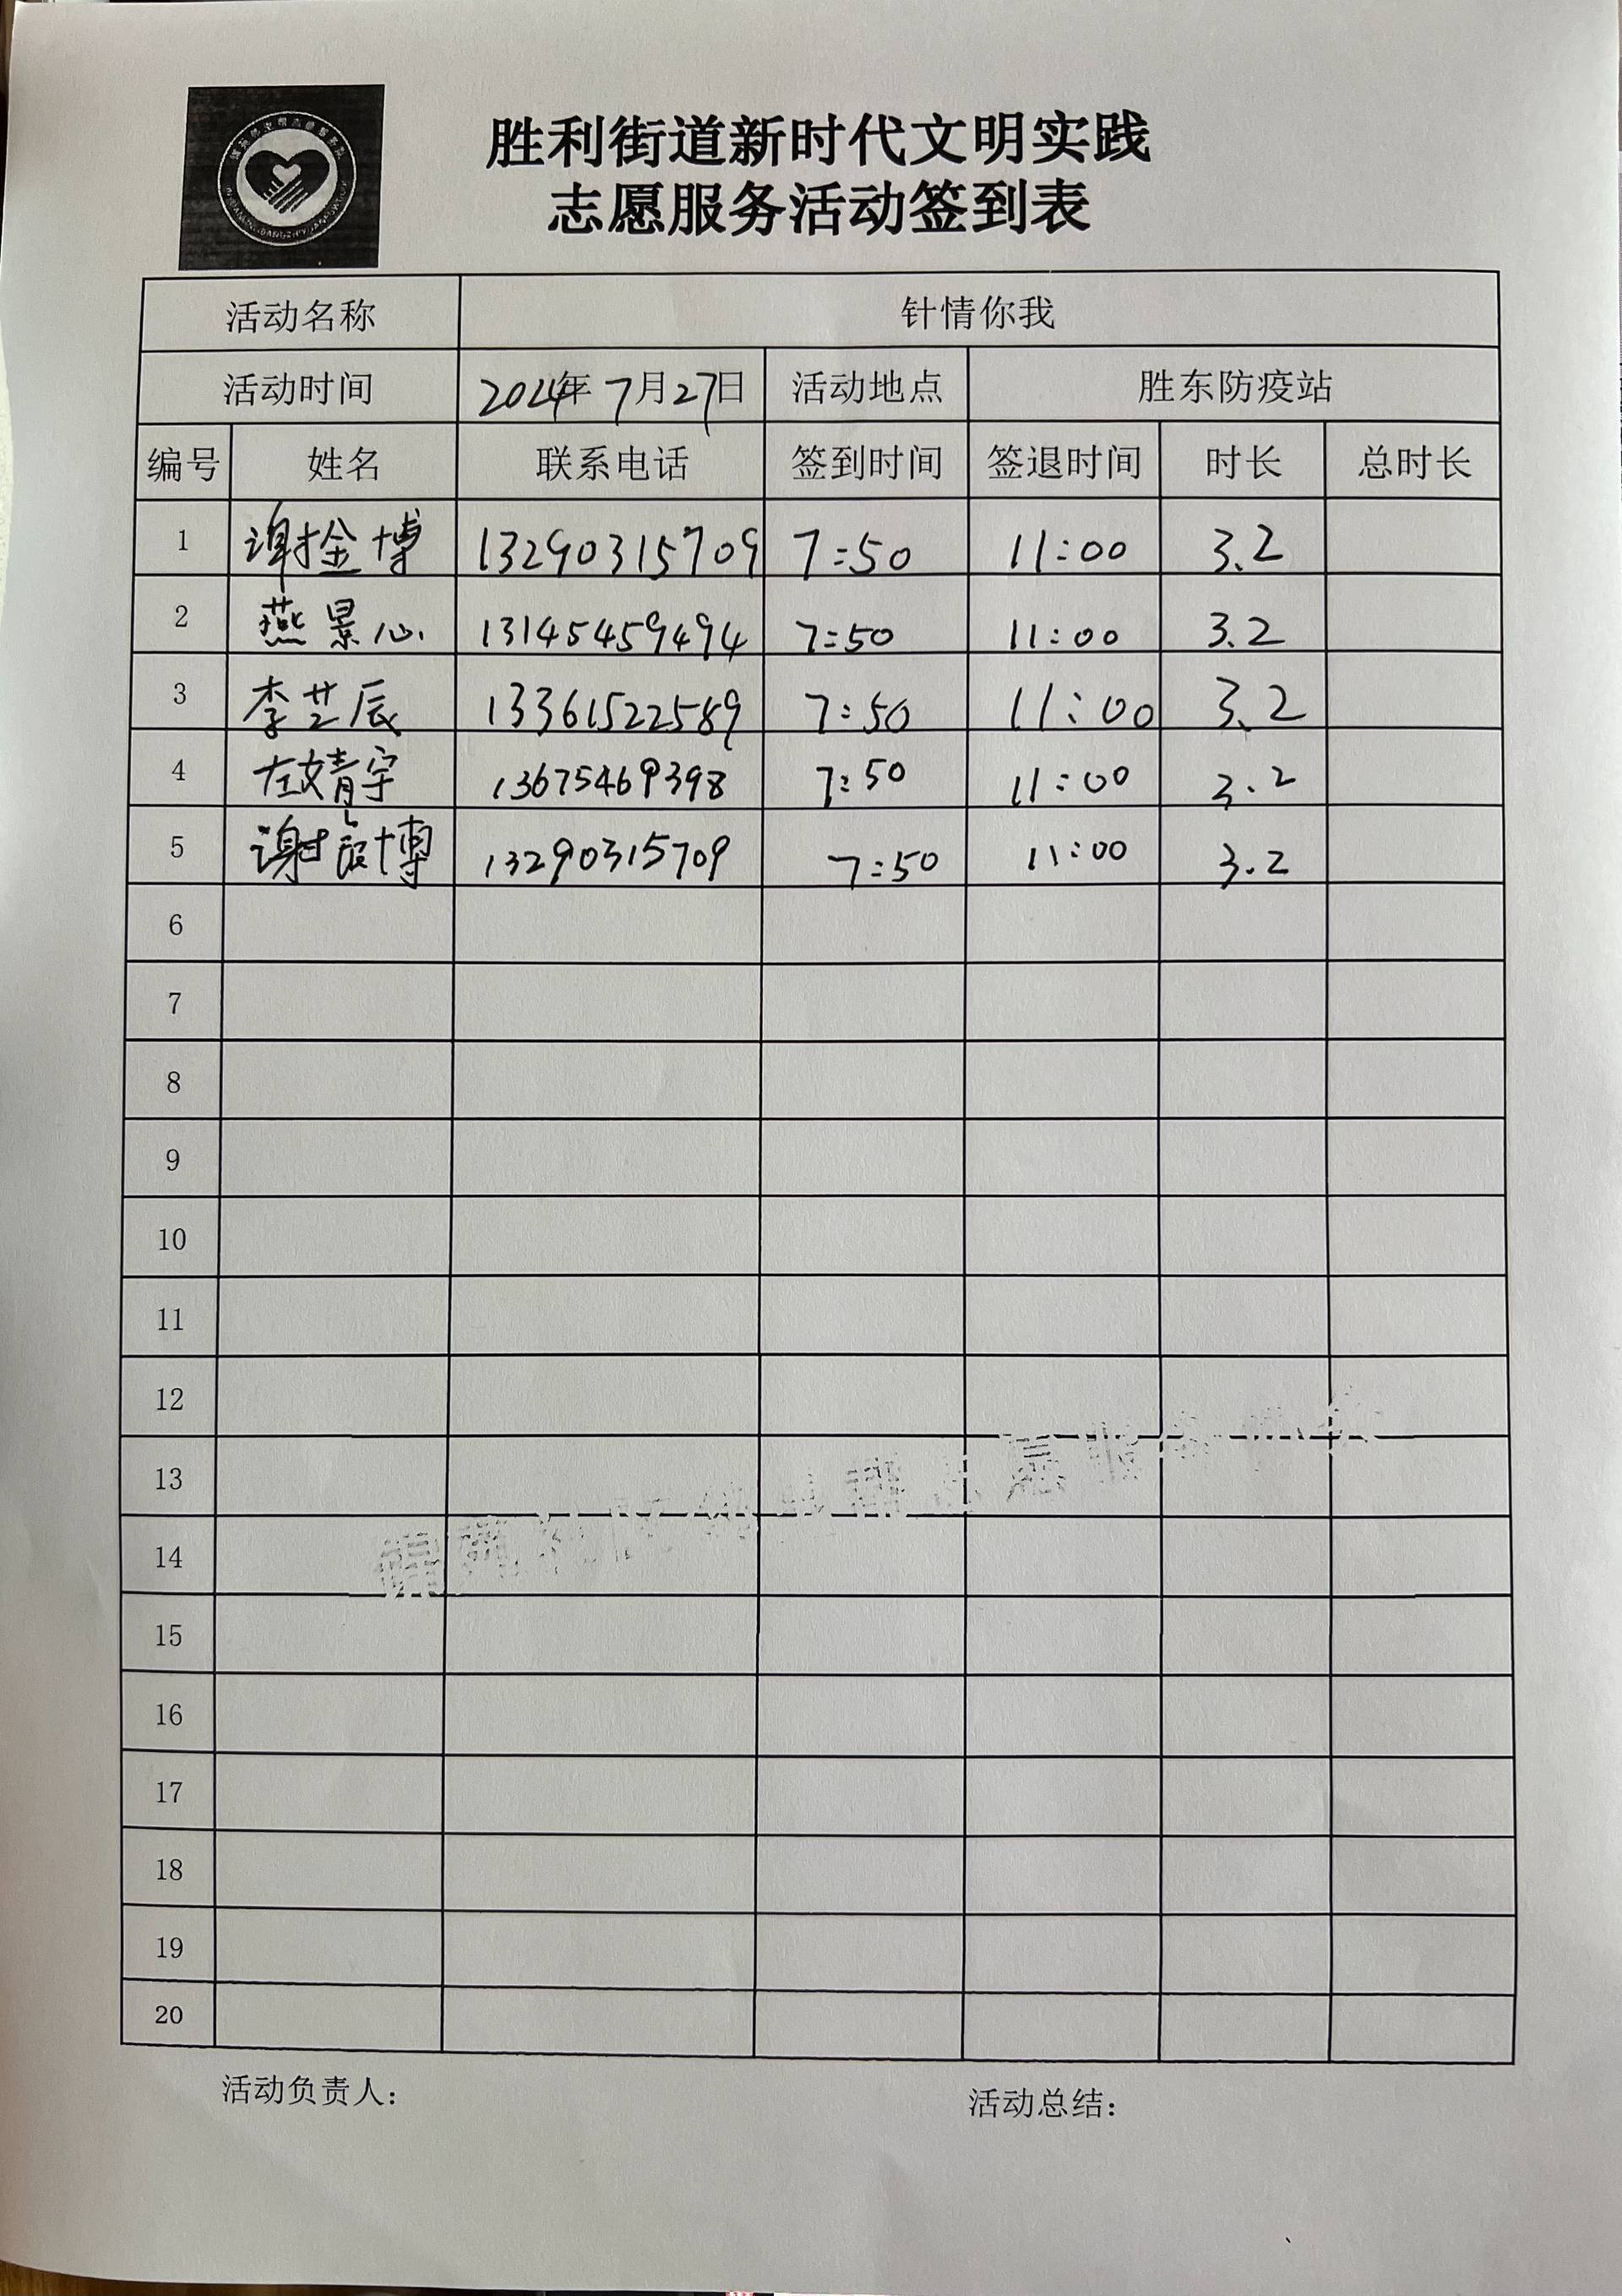 胜利街道新时代文明实践
志愿服务活动签到表
活动名称 针情你我
活动时间 2024年7月27日 活动地点 胜东防疫站
编号 姓名 联系电话 签到时间 签退时间 时长 总时长
1 谢金博 13290315709 7:50 11:00 3.2
2 燕景心 13145459494 7:50 11:00 3.2
3 李芷辰 13361522589 7:50 11:00 3.2
4 左婧宇 13675469398 7:50 11:00 3.2
5 谢 博 13290315709 7:50 11:00 3.2
6
7
8
9
10
11
12
13
14
15
16
17
18
19
20
活动负责人： 活动总结：